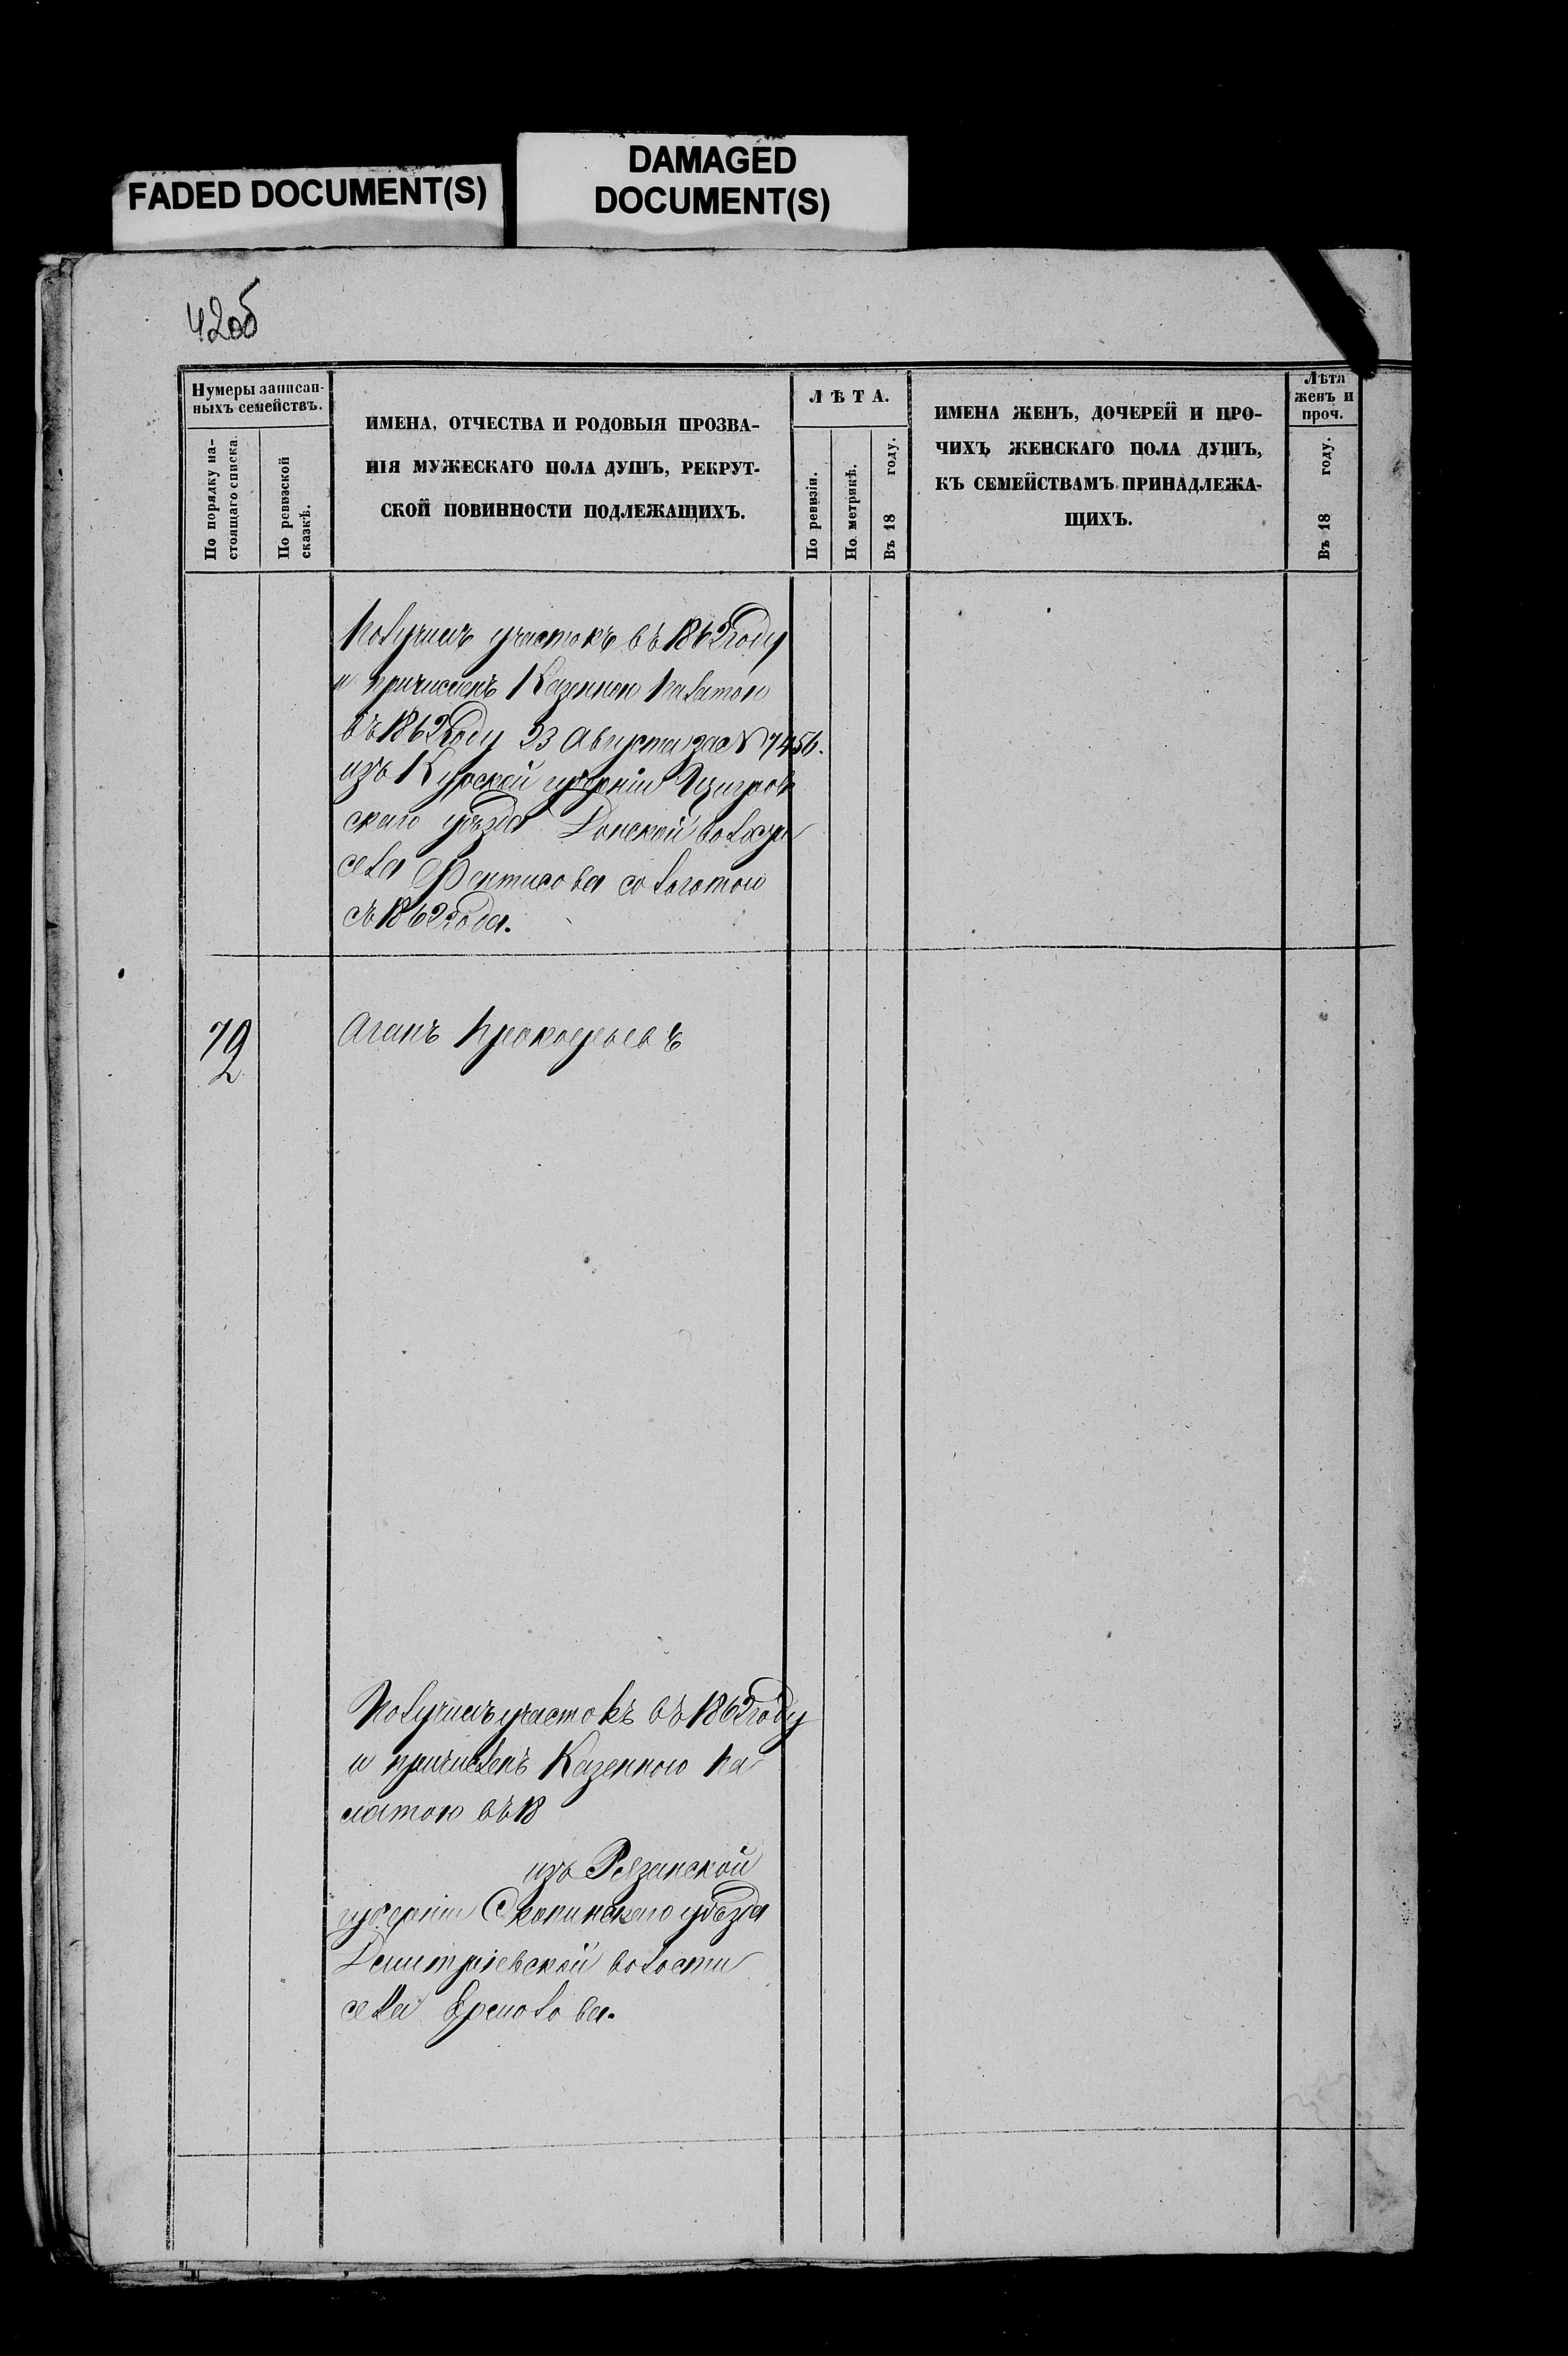 FADED DOCUMENT(S)
DAMAGED
DOCUMENT(S)
42об
Нумеры записан-
ныхъ семействъ.
По порядку на-
стоящаго списка.
По ревизской
сказкѣ.
ИМЕНА, ОТЧЕСТВА И РОДОВЫЯ ПРОЗВА-
НІЯ МУЖЕСКАГО ПОЛА ДУШЪ, РЕКРУТ-
СКОЙ ПОВИННОСТИ ПОДЛЕЖАЩИХЪ.
ЛѢТА.
По ревизіи.
По метрикѣ.
Въ 18 году.
ИМЕНА ЖЕНЪ, ДОЧЕРЕЙ И ПРО-
ЧИХЪ ЖЕНСКАГО ПОЛА ДУШЪ,
КЪ СЕМЕЙСТВАМЪ ПРИНАДЛЕЖА-
ЩИХЪ.
Лѣта
женъ и
проч.
Въ 18 году.
Получилъ участокъ въ 1862 году
и причисленъ Казенною палатою
въ 1862 году 23 Августа за № 7456.
изъ Курской губерніи Щигров
скаго уѣзда Донской волости
села Фентисова со льготою
съ 1862 года.
72
Агапъ Прокофьевъ
Получилъ участокъ въ 1862 году
и причисленъ Казенною па
латою въ 18
изъ Рязанской
губерніи Скопинскаго уѣзда
Дмитріевской волости
села Ермолова.